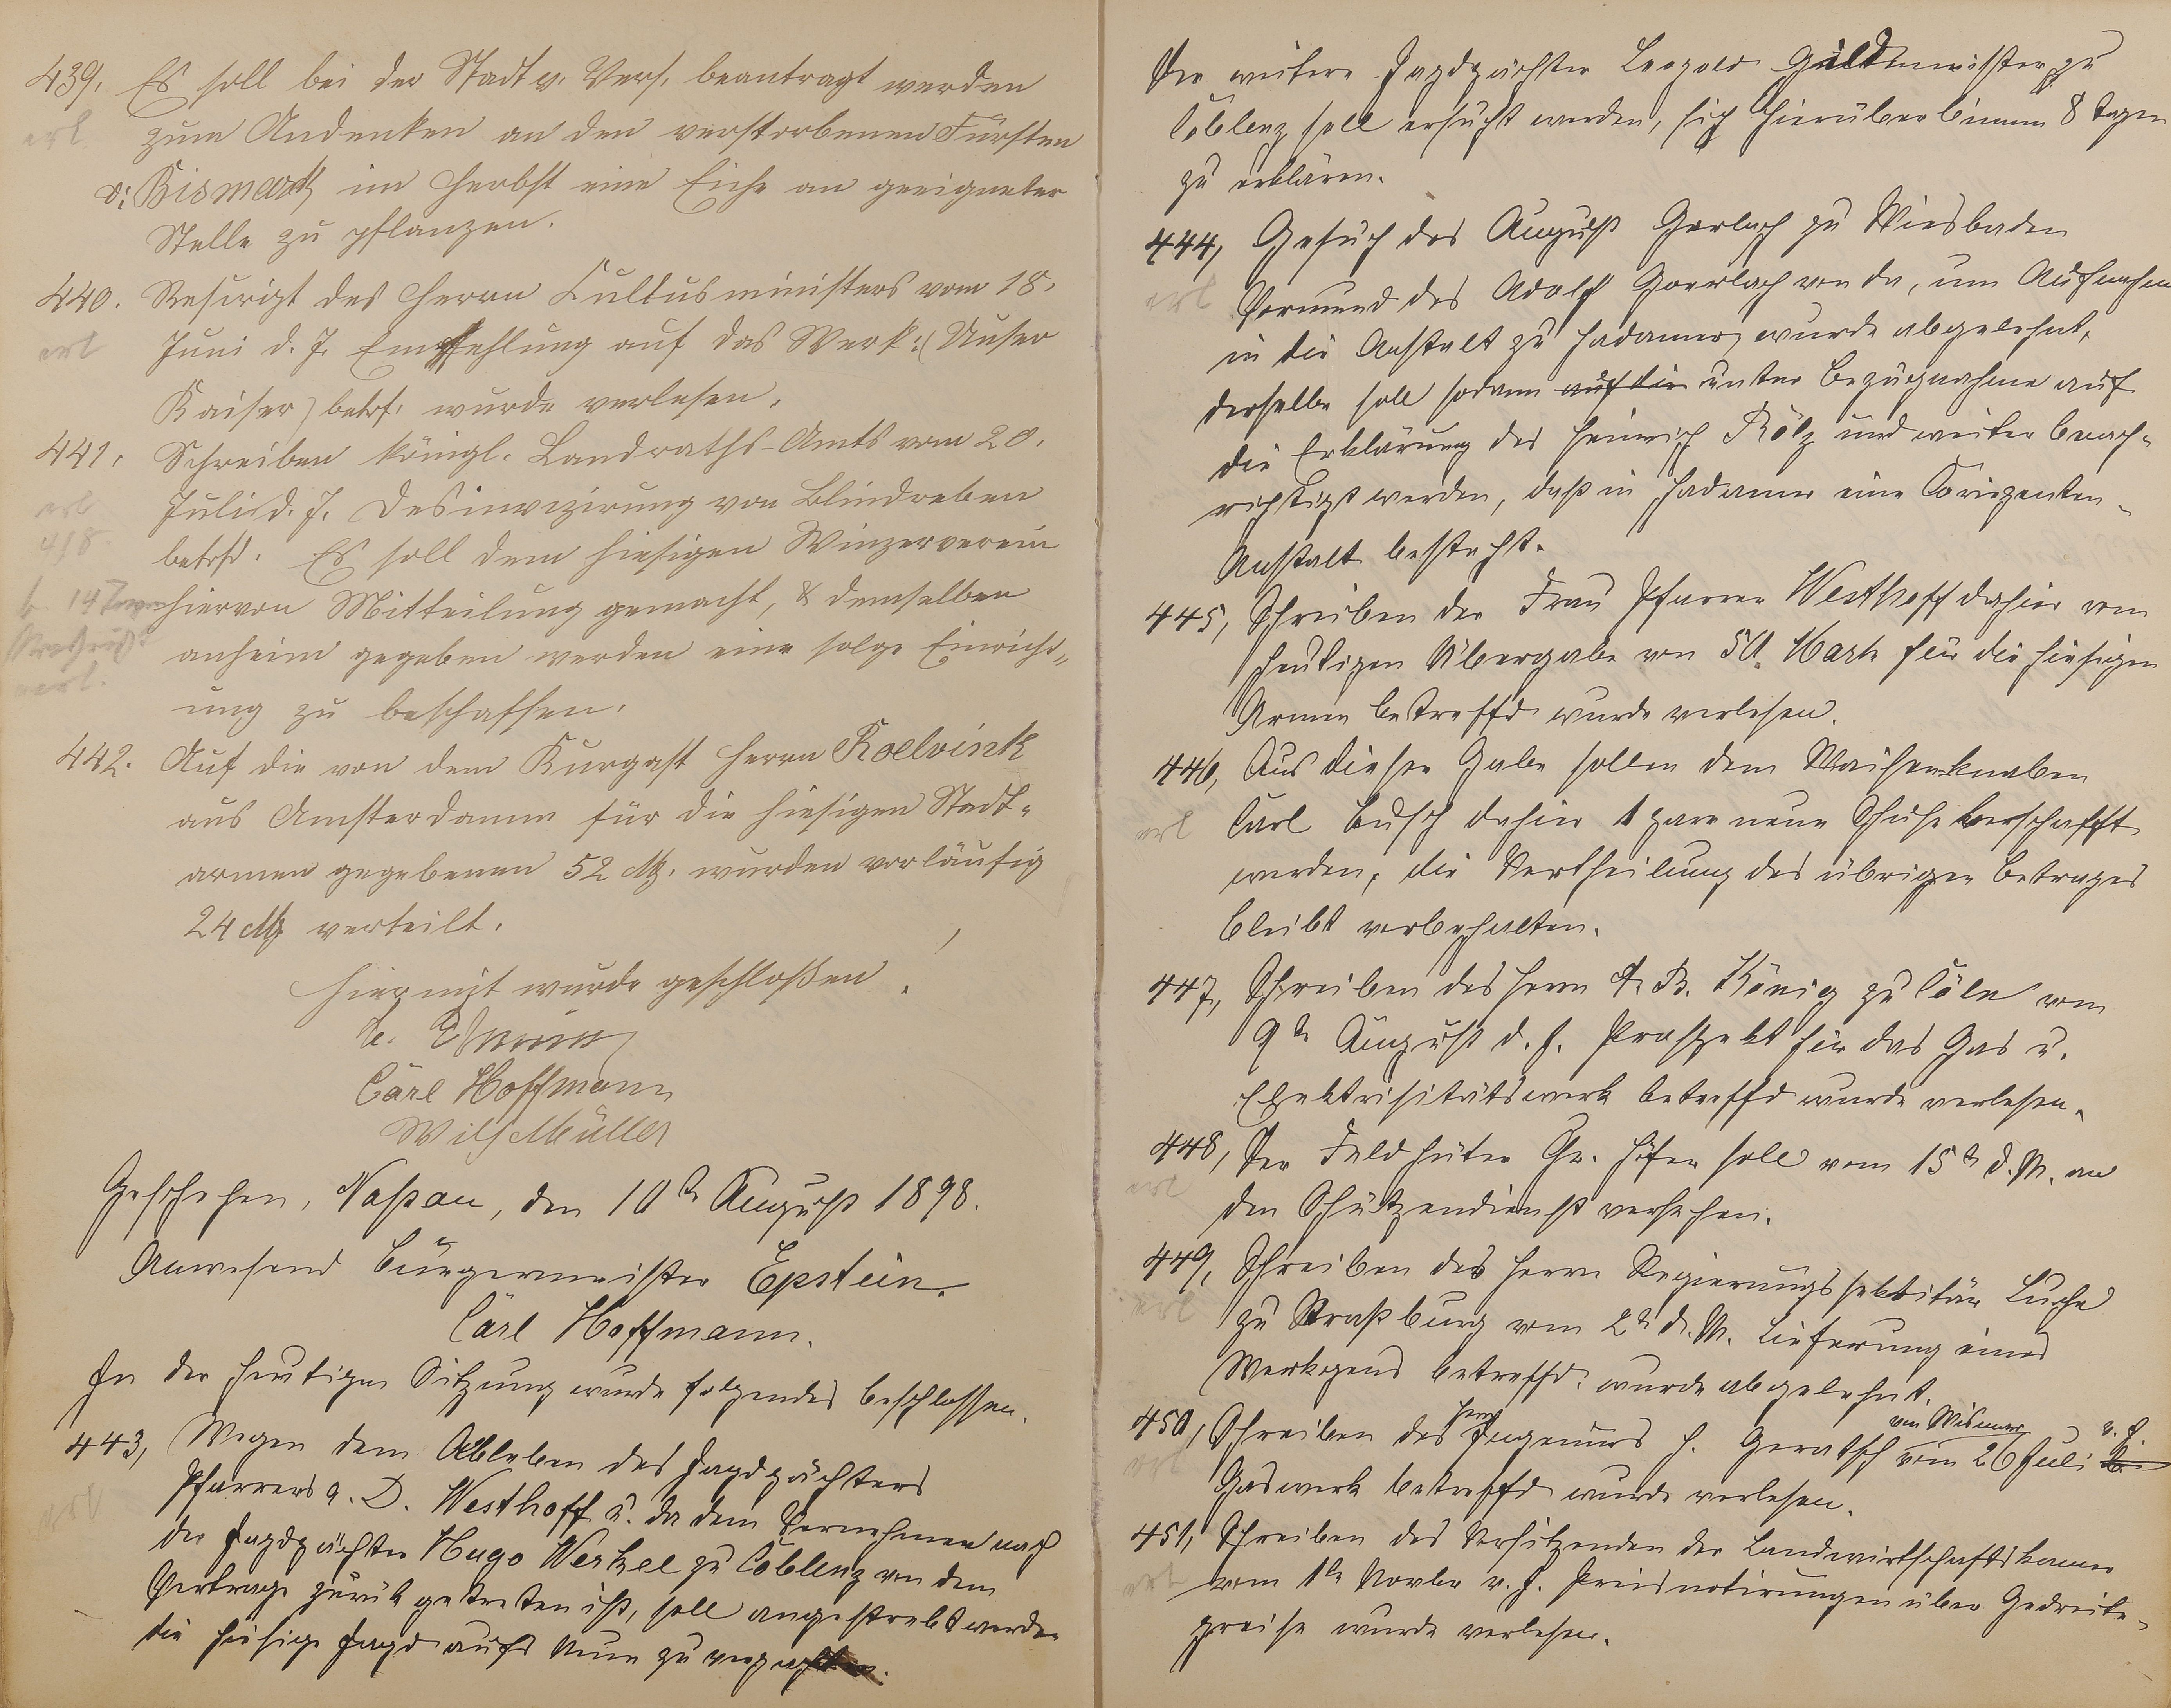 439. Es soll bei der Stadt v. Vers. beantragt werden
erl
zum Andenken an den verstorbenen Fürsten
v. Bismark im Herbst eine Eiche an geeigneter
Stelle zu pflanzen.
440. Rescript des Herrn Cultusministers vom 18.
erl
Juni d. J. Empfehlung auf das Werk: (Unser
Kaiser) betrf. wurde verlesen.
441. Schreiben königl. Landraths-Amts vom 20.
erl
Juli d. J. Desinvizirung von Blindreben
betrfd. Es soll dem hiesigen Winzerverein
hiervon Mitteilung gemacht, & demselben
anheim gegeben werden eine solge Einricht„
erl.
ung zu beschaffen.
442. Auf die von dem Kurgast Herrn Roelvink
aus Amsterdamm für die hiesigen Stadt-
armen gegebenen 52 M. wurden vorläufig
24 M verteilt.
Hiermit wurde geschloßen.
Carl Hoffmann
Wilh Müller
Geschehen, Naßau, den 10te August 1898.
Anwesend Bürgermeister Epstein.
Carl Hoffmann.
In der heutigen Sitzung wurde folgendes beschlossen.
443, Wegen dem Ableben des Jagdpächters
Pfarrers a. D. Westhoff u. da dem Vernehmen nach
erl
der Jagdpächter Hugo Werkel zu Coblenz von dem
Vertrage zurük getreten ist, soll angestrebt werden
die hiesige Jagd aufs Neue zu verpachten.
Der weitere Jagdpächter Leopold Güldenmeister zu
Coblenz soll ersucht werden, sich hierüber binnen 8 Tagen
zu erklären.
444, Gesuch des August Gerlach zu Wiesbaden
erl
Vormund des Adolf Goerlach von da, um Aufnahme
in die Anstalt zu Hadamar, wurde abgelehnt,
derselbe soll sodann auf die unter Bezugnahme auf
die Erklärung des Heinrich Rölz und weiter benach-
richtigt werden, daß in Hadamar eine Corigenten-
Anstalt besteht.
445, Schreiben der Frau Pfarrer Westhoff dahier vom
heutigen Übergabe von 50. Mark für die hiesigen
Armen betreffd wurde verlesen.
446, Aus dieser Gabe sollen dem Waisenknaben
erl
Carl Busch dahier 1 paar neue Schuhe beschafft
werden, die Vertheilung des übrigen Betrages
bleibt vorbehalten.
447, Schreiben des Herrn A. B. König zu Cöln vom
9te August d. J. Prospekt für das Gas u.
Elektrisitätswerk betreffd wurde verlesen.
448, Der Feldhüter Chr. Höfer soll vom 15te d. M. an
erl
den Schützendienst versehen.
449, Schreiben des Herrn Regierungssekretär Luche
erl
zu Straßburg vom 2te d. M. Lieferung eines
Werkgens betreffd. wurde abgelehnt.
450, Schreiben des Herrn Ingenieurs H. Geratsch von Wismar vom 26 Juli v. J.
erl
Gaswerk betreffd wurde verlesen.
451, Schreiben des Vorsitzenden der Landwirtschaftskamer
erl
vom 1te Novbr v. J. Preisnotirungen über Gedreite-
preise wurde verlesen.